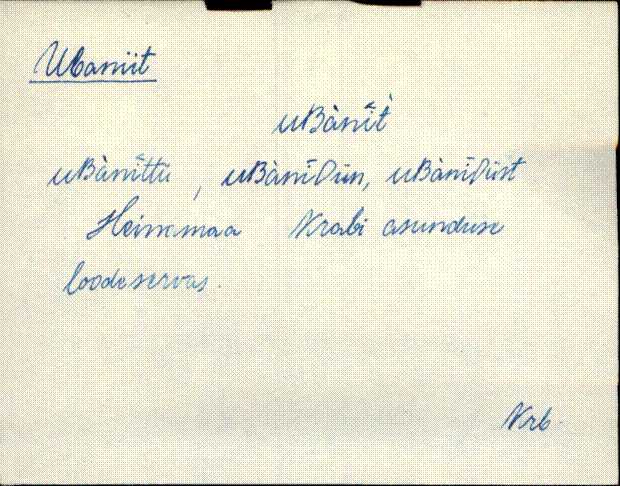 Ubaniit
uBànīt̀
uBànīttü, uBànīDün, uBànīDüst
Heinamaa Krabi asunduse
loodeservas.
Krb.